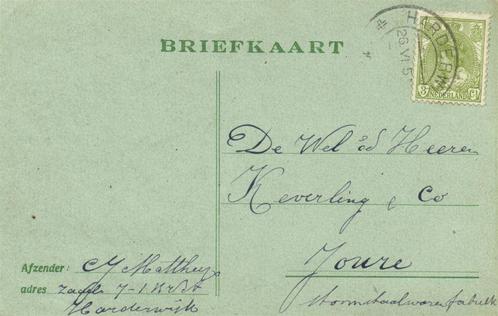 BRIEFKAART
HARDERW
26 VI 5
3 NEDERLAND Ct
De Wel èd Heeren
Keverling & Co
Joure
stoomstaalwarenfabriek
Afzender: J Matthey
adres
Harderwijk